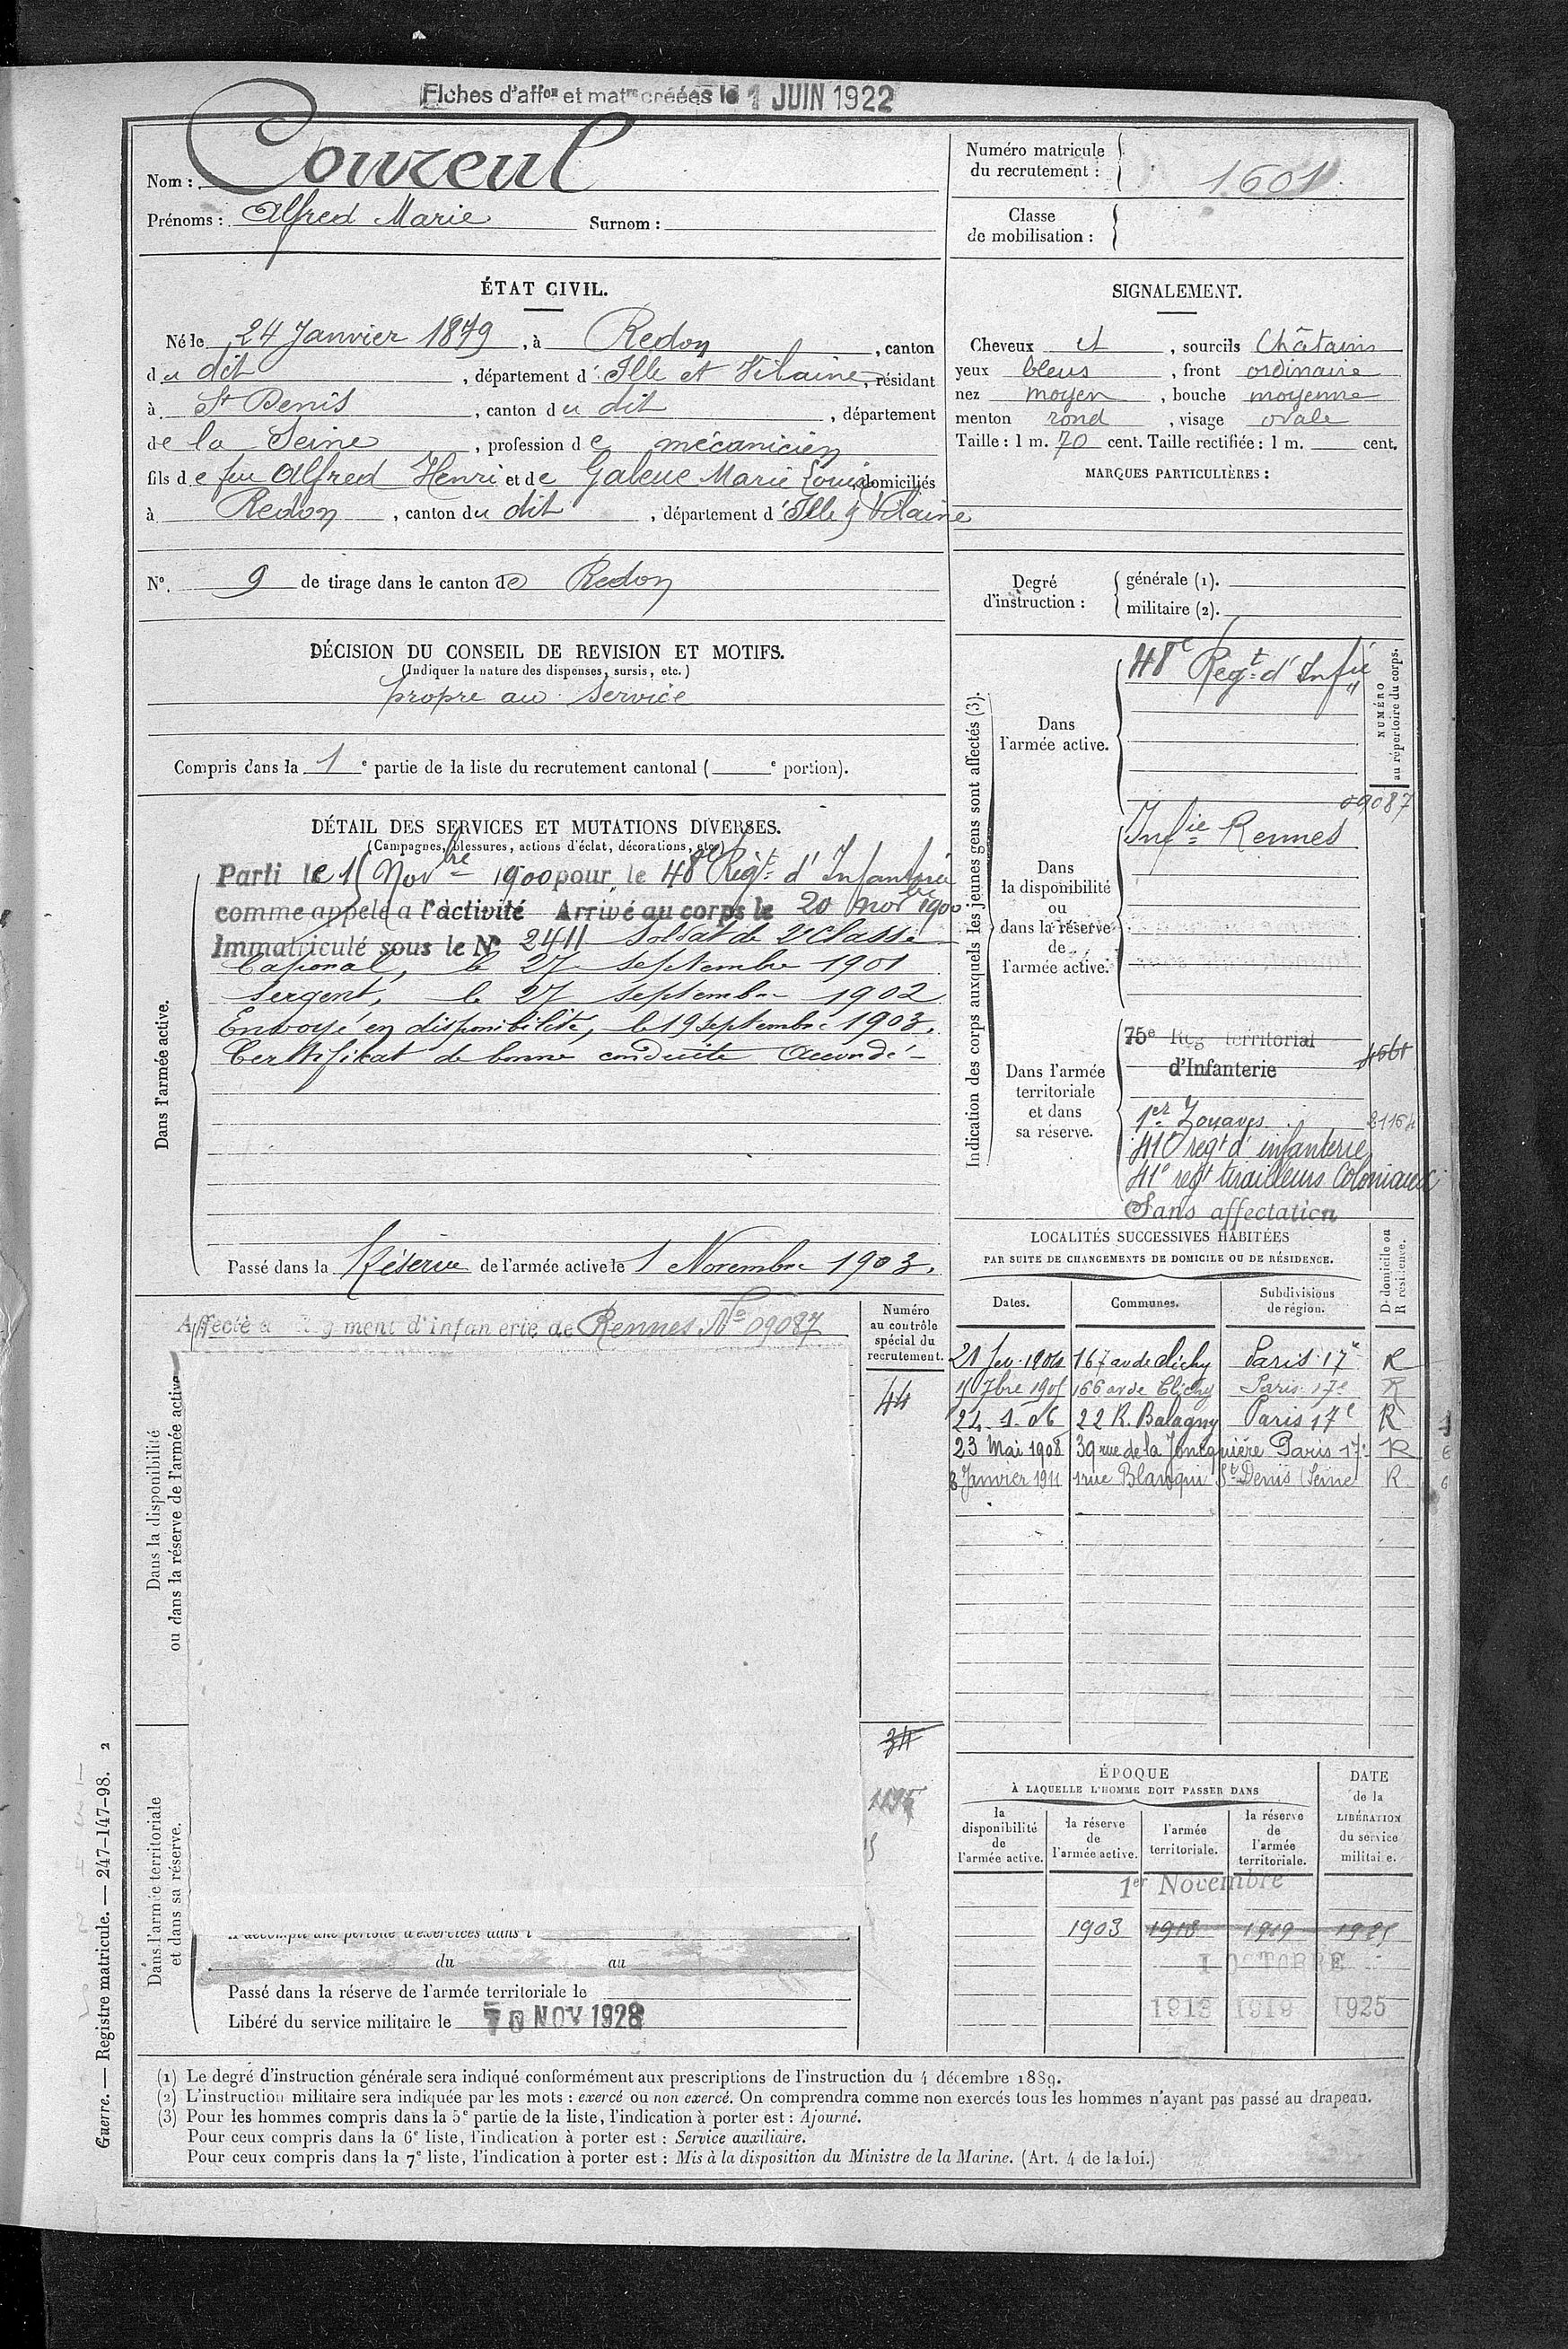 Fiches d'affon et matre créées le 1 JUIN 1922
Nom : Coureul
Prénoms : Alfred Marie Surnom :
Numéro matricule du recrutement : 1601
Classe de mobilisation :
ÉTAT CIVIL.
Né le 24 Janvier 1879, à Redon, canton
du dit, département d'Ille et Vilaine, résidant
à St Denis, canton du dit, département
de la Seine, profession de mécanicien
fils de feu Alfred Henri et de Marie Louise, domiciliés
à Redon, canton du dit, département d'Ille & Vilaine
SIGNALEMENT.
Cheveux et, sourcils Châtains
yeux bleus, front ordinaire
nez moyen, bouche moyenne
menton rond, visage ovale
Taille : 1 m. 70 cent. Taille rectifiée : 1 m. cent.
MARQUES PARTICULIÈRES :
N°. 9 de tirage dans le canton de Redon
Degré d'instruction : générale (1).
militaire (2).
DÉCISION DU CONSEIL DE REVISION ET MOTIFS.
(Indiquer la nature des dispenses, sursis, etc.)
propre au service
Compris dans la 1e partie de la liste du recrutement cantonal ( e portion).
DÉTAIL DES SERVICES ET MUTATIONS DIVERSES.
(Campagnes, blessures, actions d'éclat, décorations, etc.)
Dans l'armée active.
Parti le 15 Novbre 1900 pour le 48e Régt d'Infanterie
comme appelé à l'activité Arrivé au corps le 20 novbre 1900
Immatriculé sous le N° 2411 Soldat de 2e classe
Caporal, le 27 septembre 1901
Sergent, le 27 septembre 1902
Envoyé en disponibilité, le 19 septembre 1903.
Certificat de bonne conduite Accordé
Passé dans la Réserve de l'armée active le 1 Novembre 1903.
Indication des corps auxquels les jeunes gens sont affectés (3).
NUMÉRO au répertoire du corps.
Dans l'armée active.
48e Regt d'Infie
Dans la disponibilité ou dans la réserve de l'armée active.
09087
Infie Rennes
Dans l'armée territoriale et dans sa réserve.
75e Rég territorial
d'Infanterie
1er Zouaves
41e regt d'infanterie
41e regt tirailleurs Coloniaux
Sans affectation
LOCALITÉS SUCCESSIVES HABITÉES
PAR SUITE DE CHANGEMENTS DE DOMICILE OU DE RÉSIDENCE.
D domicile ou R résidence.
Dates. Communes. Subdivisions de région.
21 Fev. 1904 167 av de Clichy Paris 17e R
15 7bre 1905 166 av de Clichy Paris 17e R
24. 1. 06 22 R. Balagny Paris 17e R
23 Mai 1908 39 rue de la Jonquière Paris 17e R
8 Janvier 1911 1 rue Blanqui St Denis (Seine) R
Affecté au Régiment d'Infanterie de Rennes No 09087
Numéro au contrôle spécial du recrutement.
44
Dans la disponibilité ou dans la réserve de l'armée active
Dans l'armée territoriale et dans sa réserve.
A accompli une période d'exercices dans l
du au
Passé dans la réserve de l'armée territoriale le
Libéré du service militaire le 10 NOV 1928
ÉPOQUE
À LAQUELLE L'HOMME DOIT PASSER DANS
la disponibilité de l'armée active.
la réserve de l'armée active.
l'armée territoriale.
la réserve de l'armée territoriale.
DATE de la LIBÉRATION du service militaire.
1er Novembre
1903 1913 1919 1925
1 OCTOBRE
1913 1919 1925
(1) Le degré d'instruction générale sera indiqué conformément aux prescriptions de l'instruction du 4 décembre 1889.
(2) L'instruction militaire sera indiquée par les mots : exercé ou non exercé. On comprendra comme non exercés tous les hommes n'ayant pas passé au drapeau.
(3) Pour les hommes compris dans la 5e partie de la liste, l'indication à porter est : Ajourné.
Pour ceux compris dans la 6e liste, l'indication à porter est : Service auxiliaire.
Pour ceux compris dans la 7e liste, l'indication à porter est : Mis à la disposition du Ministre de la Marine. (Art. 4 de la loi.)
Guerre. — Registre matricule. — 247-147-98. 2